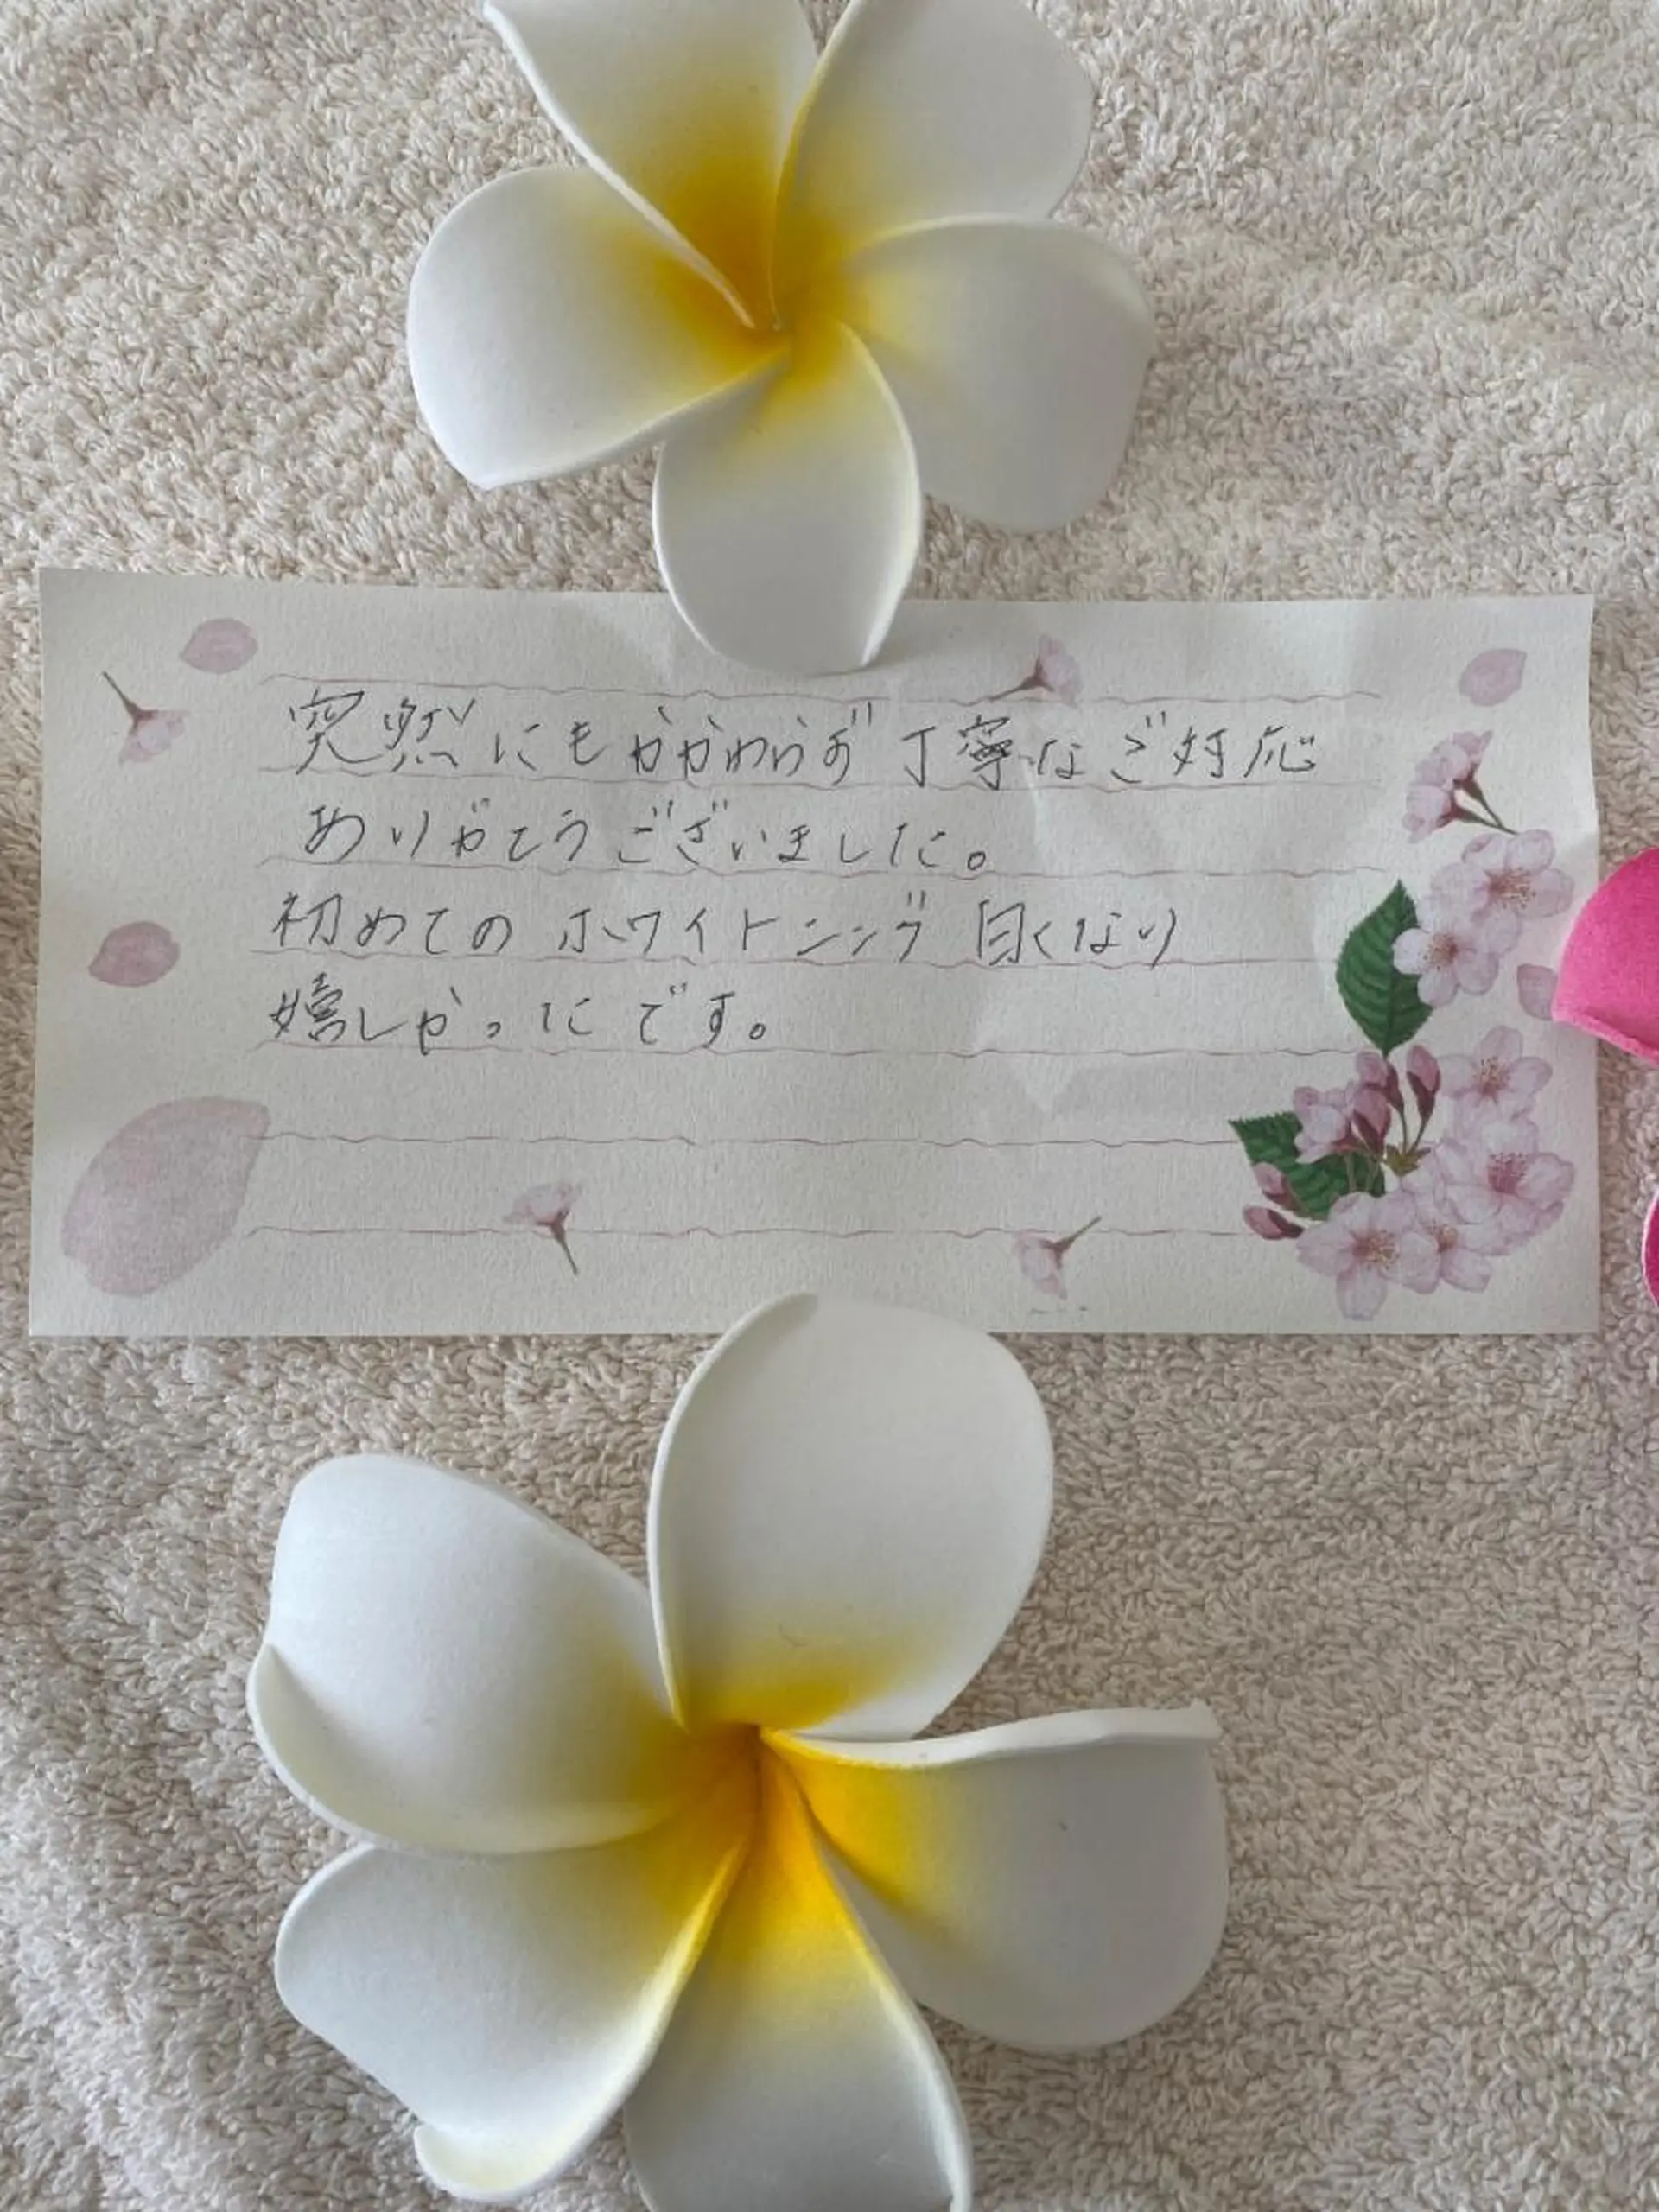 突然にもかかわらず丁寧なご対応
ありがとうございました。
初めてのホワイトニング白くなり
嬉しかったです。